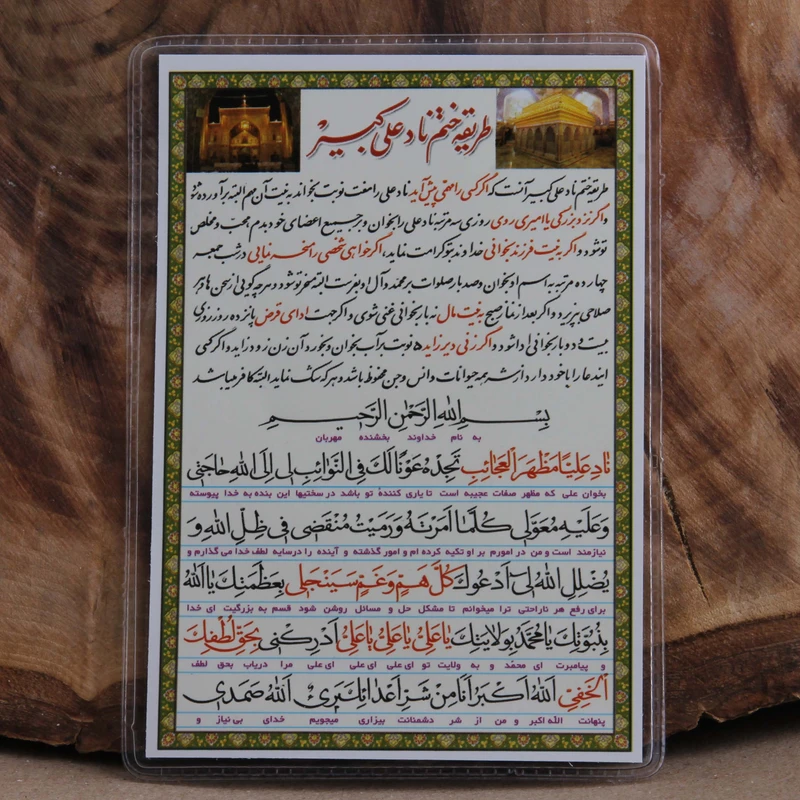 طریقه ختم ناد علی کبیر
طریقه ختم ناد علی کبیر آنست که اگر کسی را مهمی پیش آید ناد علی را هفت نوبت بخواند به نیت آن مهم البته برآورده شود
و اگر نزد بزرگی یا امیری روی روزی سه مرتبه ناد علی را بخوان و بر جمیع اعضای خود بدم محب و مخلص
تو شود و اگر به نیت فرزند بخوانی خداوند بتو کرامت نماید، اگر خواهی شخصی را مسخر نمایی در شب جمعه
چهارده مرتبه به اسم او بخوان و صد بار صلوات بر محمد و آل او بفرست البته مسخر تو شود و هر چه گویی از سخن های تو
صلاحی بپذیرد و اگر بعد از نماز صبح به نیت مال نه بار بخوانی غنی شوی و اگر جهت ادای قرض پانزده روز روزی
بیست و دو بار بخوانی ادا شود و اگر زنی دیر زاید ۵ نوبت بر آب بخوان و بخورد آن زن زود زاید و اگر کسی
این دعا را با خود دارد از شر همه حیوانات و انس و جن محفوظ باشد و هر که شک نماید البته کافر میباشد
بِسْمِ اللهِ الرَّحْمٰنِ الرَّحیمِ
به نام خداوند بخشنده مهربان
نادِ عَلِیًّا مَظْهَرَ الْعَجائِبِ تَجِدْهُ عَوْنًا لَکَ فِی النَّوائِبِ لی اِلَی اللهِ حاجَتی
بخوان علی که مظهر صفات عجیبه است تا یاری کنندهٔ تو باشد در سختیها این بنده به خدا پیوسته
وَ عَلَیْهِ مُعَوَّلی کُلَّما اَمَرْتَهُ وَ رَمَیْتُ مُنْقَضی فی ظِلِّ اللهِ وَ
نیازمند است و من در امورم بر او تکیه کرده ام و امور گذشته و آینده را درسایه لطف خدا می گذارم و
یُضْلِلِ اللهُ لی اَدْعُوکَ کُلَّ هَمٍّ وَ غَمٍّ سَیَنْجَلی بِعَظَمَتِکَ یا اَللهُ
برای رفع هر ناراحتی ترا میخوانم تا مشکل حل و مسائل روشن شود قسم به بزرگیت ای خدا
بِنُبُوَّتِکَ یا مُحَمَّدُ بِوِلایَتِکَ یا عَلِیُّ یا عَلِیُّ یا عَلِیُّ اَدْرِکْنی بِحَقِّ لُطْفِکَ
و پیامبرت ای محمّد و به ولایت تو ای علی ای علی ای علی مرا دریاب بحق لطف
الْخَفِیِّ اَللهُ اَکْبَرُ اَنَا مِنْ شَرِّ اَعْدائِکَ بَریٌ اَللهُ صَمَدی
پنهانت الله اکبر و من از شر دشمنانت بیزاری میجویم خدای بی نیاز و